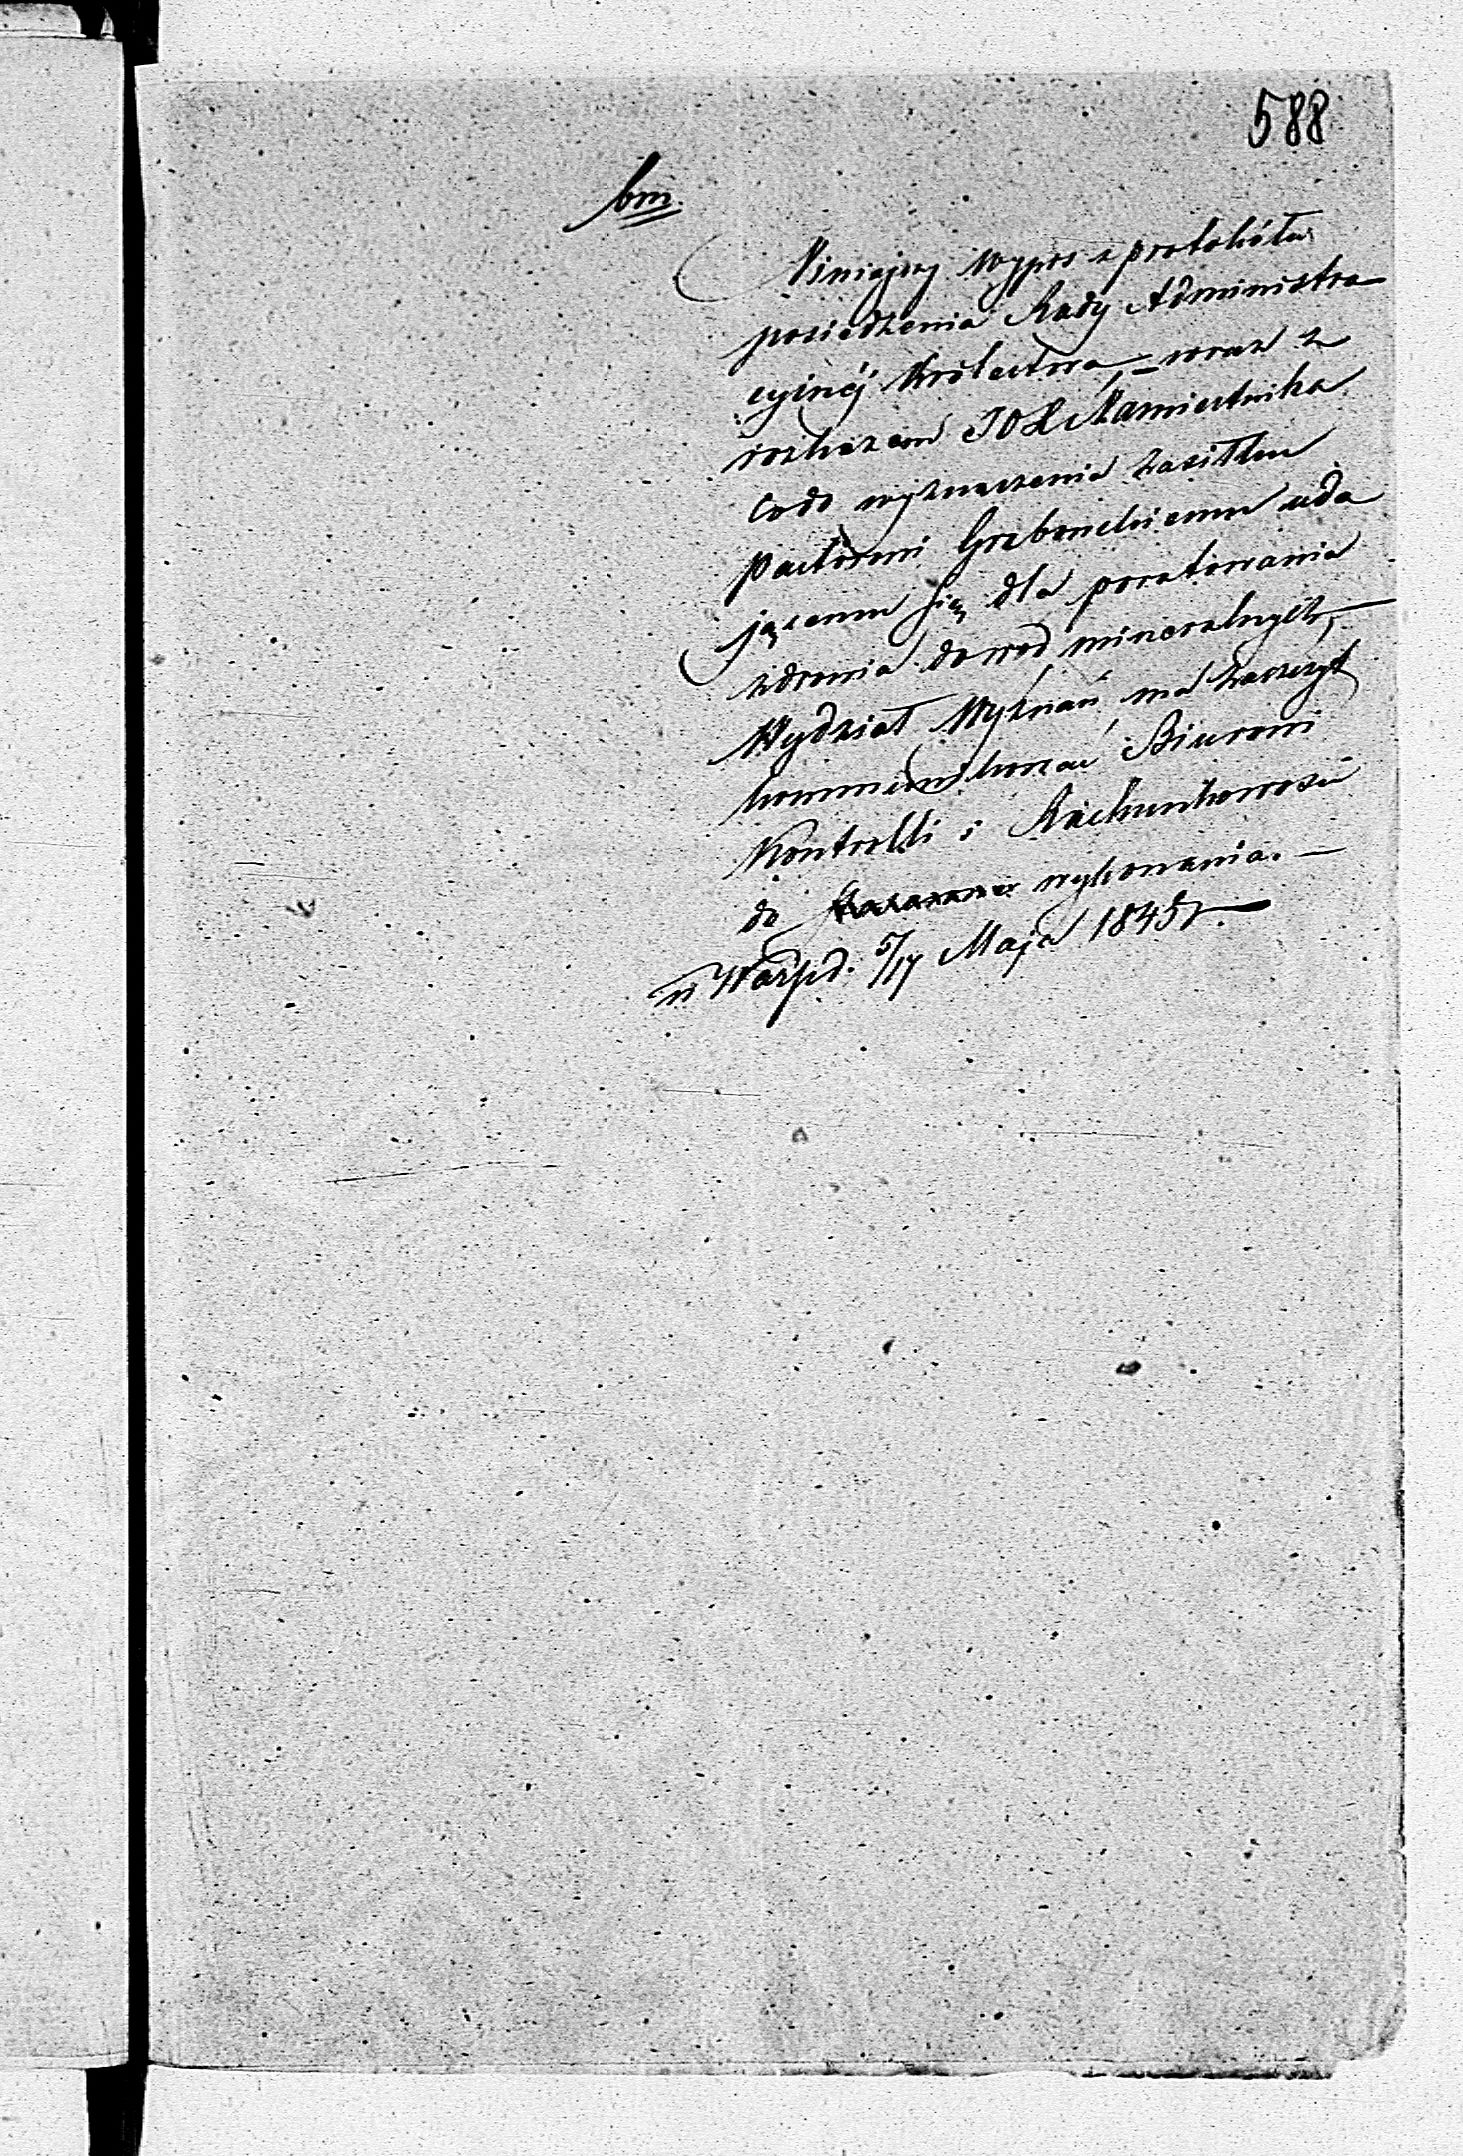 588
bm.
Niniejszy wypis z protokółu
posiedzenia Rady Administra
cyjnéj Królestwa, – wraz z
rozkazem JOX Namiestnika
co do wyznaczenia zasiłku
Pastorowi Grabowskiemu uda
jącemu się dla poratowania
zdrowia do wod mineralnych, —
Wydział Wyznań ma zaszczyt
kommunikować Biurowi
Kontrolli i Rachunkowości
do wykonania. —
w Warsz d. 5/17 Maja 1845 r. —